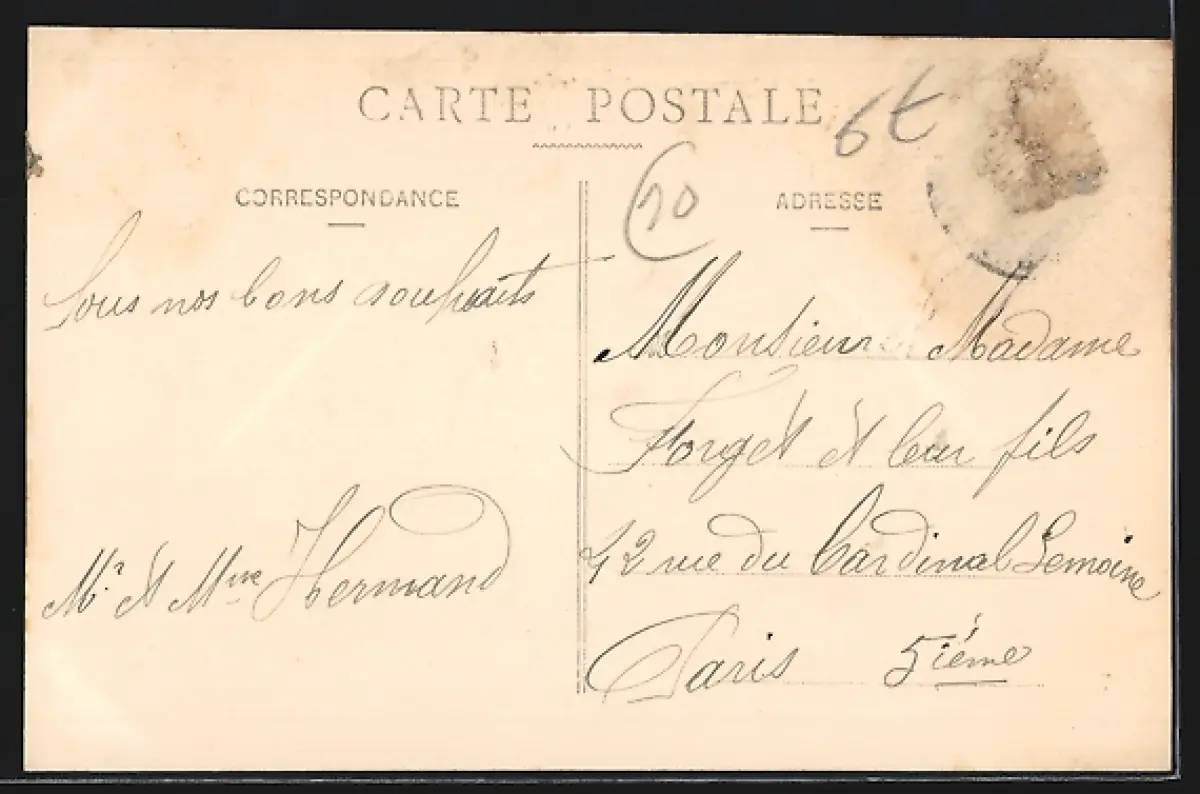 CARTE POSTALE
6t
20
CORRESPONDANCE
Tous nos bons souhaits
Mr et Mme Hermand
ADRESSE
Monsieur Madame
Forgét et leur fils
42 rue du Cardinal Lemoine
Paris 5ième